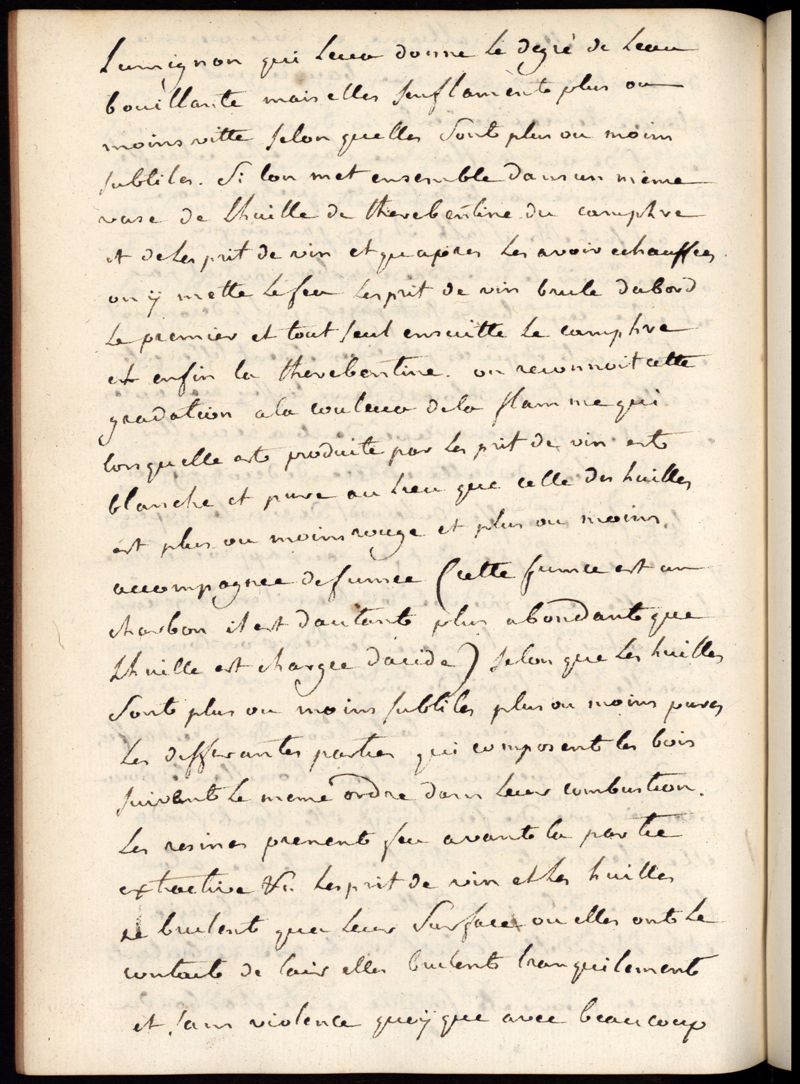 Lumignon qui leur donne le degré de leau
bouillante mais elles senflamente plus ou
moins vitte selon quelles sont plus ou moins
subtiles. Si lon met ensemble dans un même
vase de lhuille de therebentine du camphre
et de lesprit de vin et quapres les avoir echauffées
on ÿ mette le feu lesprit de vin brule dabord
le premier et tout seul ensuitte le camphre
et enfin la therebentine. on reconnoit cette
gradation a la couleur de la flamme qui
lorsquelle est produite par lesprit de vin est
blanche et pure au lieu que celle des huilles
est plus ou moins rouge et plus ou moins
accompagnee de fumee (cette fumee est un
charbon il est dautant plus abondant que
lhuille est chargee dacide) selon que les huilles
sont plus ou moins subtiles plus ou moins pures
les differantes parties qui composent les bois
suivent le meme ordre dans leur combustion.
les resines prenent feu avant la partie
extractive &c. lesprit de vin et les huilles
ne brulent qua leur surface ou elles ont le
contact de lair elles brulent tranquilement
et sans violence quoÿque avec beaucoup